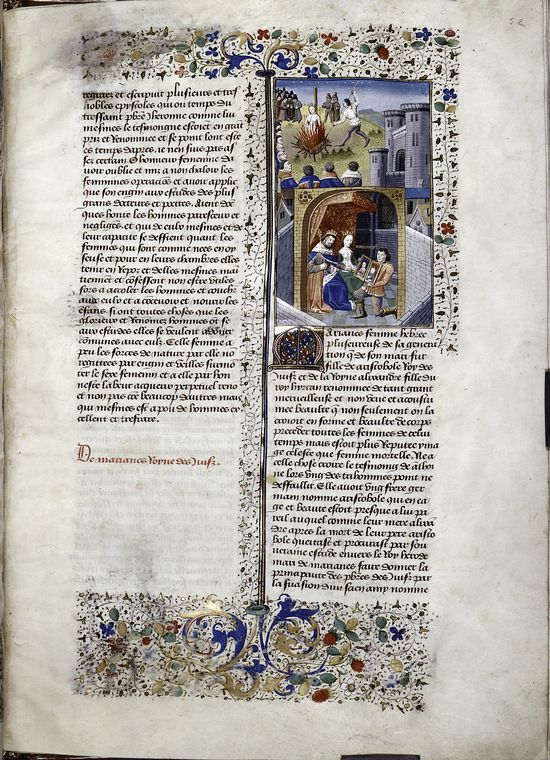 52
regines et escripuit plusieurs et tres
nobles epystoles qui ou temps du
tressaint pbre Jherome comme lui
mesmes le tesmongne estoiet en grat
pris et Renommee et se point lont este
les temps dapres . ie nen suis pas as
ses certain. O honneur femenine du
voir oublie et mis a non chaloir les
femmines operacions et auoir applic
que son engin aux estudes des plus
grans docteurs et poetes.
ques honte les hommes paresseux et
negliges. et qui de eulx mesmes et de
leur capacite se deffient quant les
femmes qui sont comme nees en oy
seuse et pour en leurs chambres elles
tenir en Repos et delles mesmes mai
tiennent et confessent non estre vtiles
fors a acoler les hommes et couch
aueuc eulx et a conceuoir et nourir les
efans. si ont toutes choses que les
glorieux et Renommez hommes ont se
aux estudes elles se veulent adonner
communes auec eulx. Et elle femme a
peu les forces de nature par elle no
regettees par engin et veilles surmo
ter le sexe femenin et a elle par hon
neste labeur acquerir perpetuel reno
et non pas come beaucop dautres mais
qui mesmes est a peu de hommes ex
cellent et tresrare.
De mariannes Royne des Juifz.
Mariannes femme hebree
plus eureuse de sa genera
tion que de son mari fut
fille de aristobole Roy des
Juifz et de la Royne alixandre fille du
roy hircan renommee de tant grant
merueilleuse et non veue et acoustu
mee beaulte que non seulement on la
creoit en forme et beaulte de corps
preceder toutes les femmes de celui
temps mais estoit plus Reputee yma
ge celeste que femme mortelle. Ne a
celle chose croire le tesmoing de antho
ne lors vng des trihommes point ne
deffaillit. Elle auoit vng frere ger
main nomme aristobole qui en ea
ge et beaute estoit presque a lui pa
reil auquel comme leur mere alixa
dre apres la mort de leur pere aristo
bole queroit et procurast par sou
ueraine estude enuers le Roy herode
mari de mariannes faire donner la
princpaute des pbres des Juifz par
la suasion dun sien amy nomme